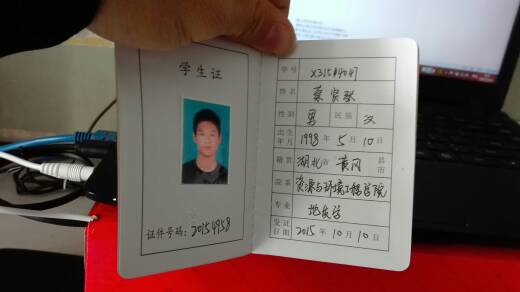 学生证
证件号码:20154958
学号 X31514047
姓名
性别 男 民族 汉
出生年月 1998年5月10日
籍贯 湖北省 黄冈 县市
院系 资源与环境工程学院
专业 地质学
发证日期 2015年10月10日